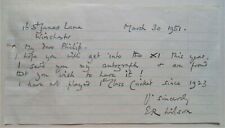 18 St James Lane March 30 1951.
Winchester
My dear Philip.
I hope you will get into the XI this year.
I send you my autograph & am proud
that you wish to have it!
I have not played 1st Class Cricket since 1923
Yrs sincerely
E R Wilson